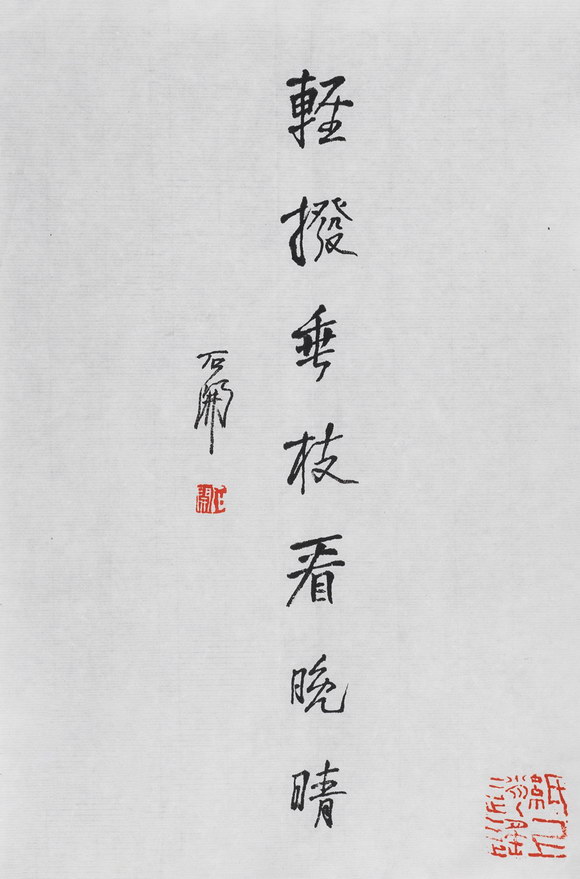 輕撥垂枝看晚晴
石開